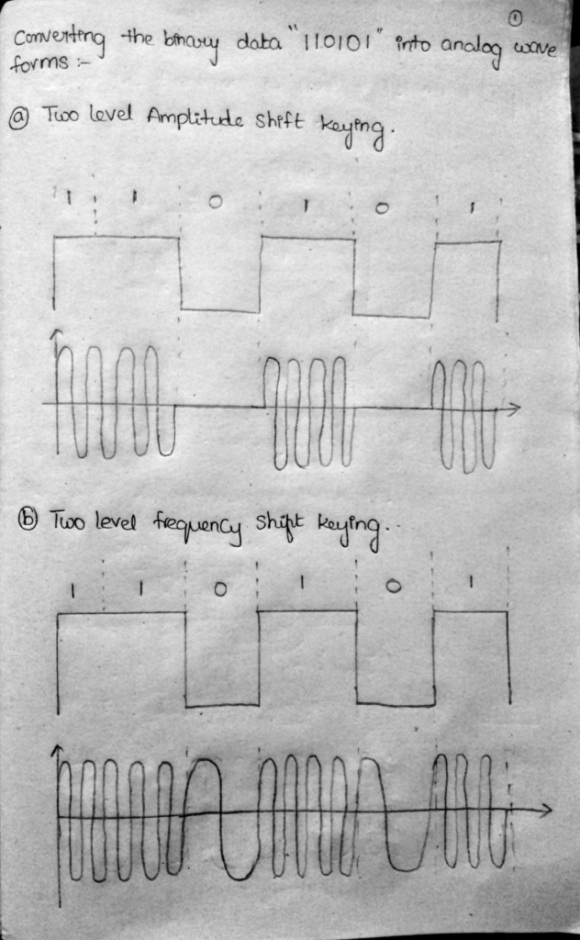 ①
Converting the binary data "110101" into analog wave
forms :-
ⓐ Two level Amplitude Shift Keying.
1 1 0 1 0 1
ⓑ Two level frequency Shift Keying..
1 1 0 1 0 1